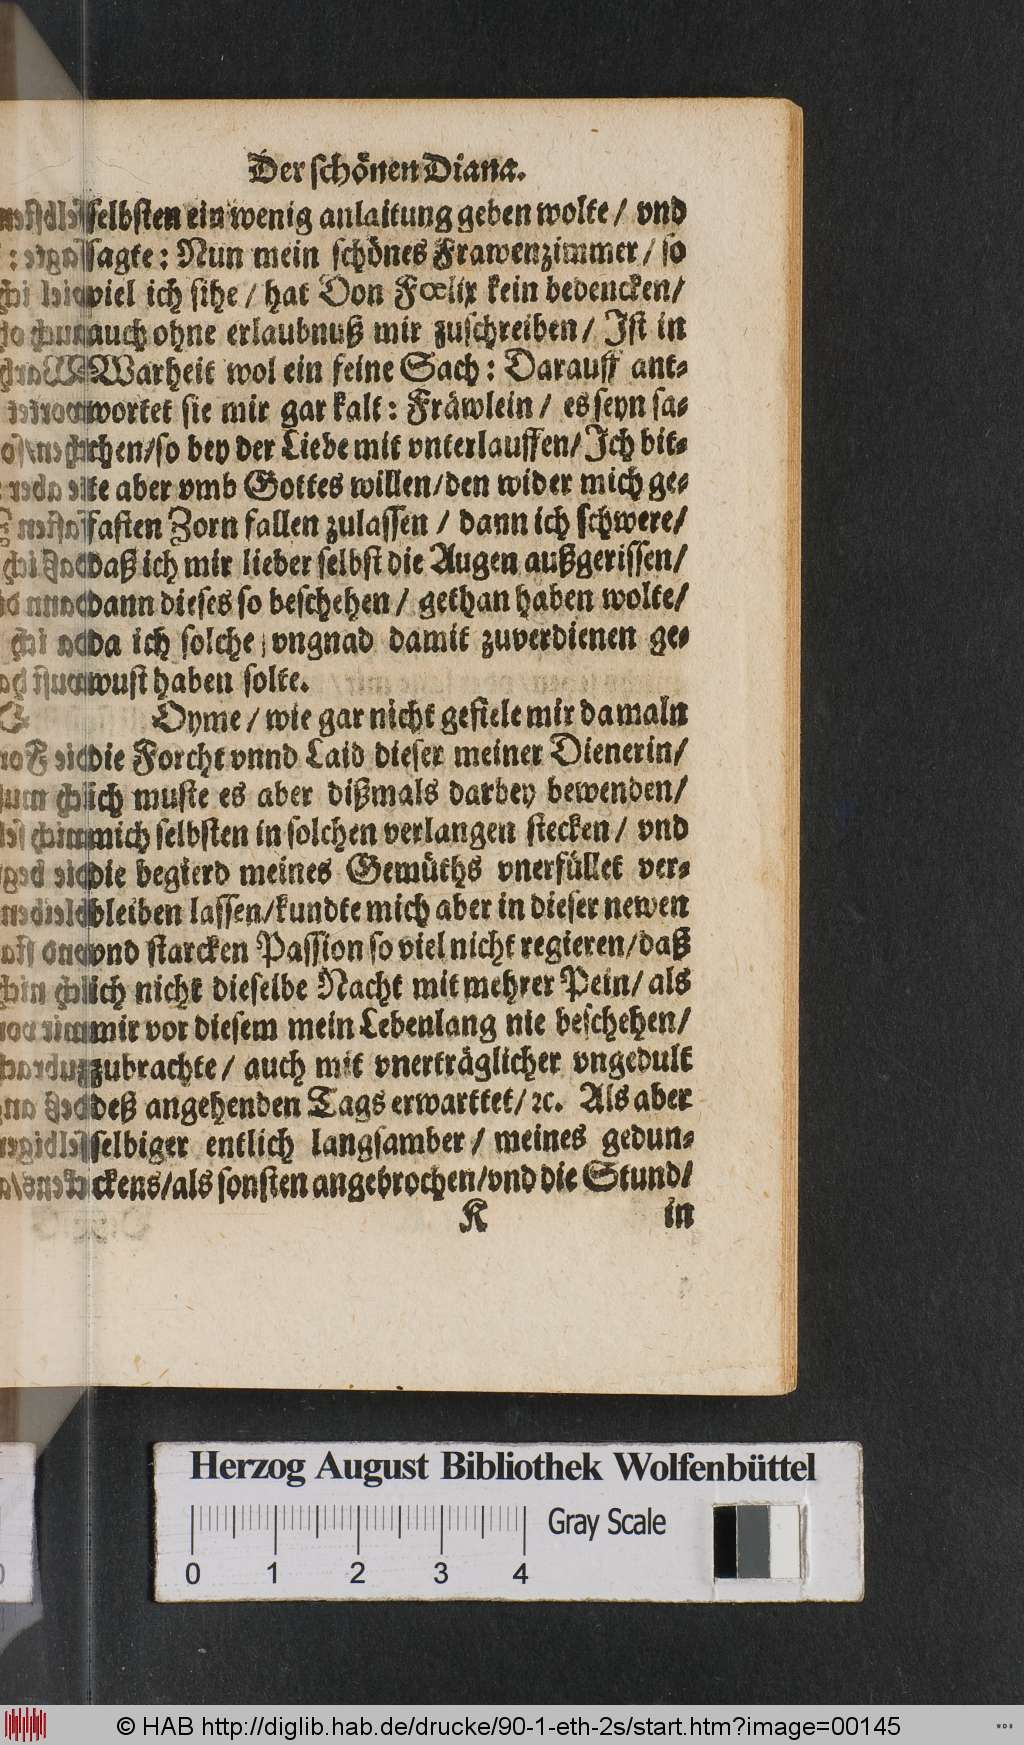 Der schönen Diana.
selbsten ein wenig anlaitung geben wolte / vnd
sagte: Nun mein schönes Frawenzimmer / so
viel ich sihe / hat Don Fœlix kein bedencken/
auch ohne erlaubnuß mir zuschreiben / Ist in
Warheit wol ein feine Sach: Darauff ant-
wortet sie mir gar kalt: Fräwlein / es seyn sa-
chen/so bey der Liebe mit vnterlauffen/ Ich bit-
te aber vmb Gottes willen/den wider mich ge-
fasten Zorn fallen zulassen / dann ich schwere/
daß ich mir lieber selbst die Augen außgerissen/
dann dieses so beschehen / gethan haben wolte/
da ich solche vngnad damit zuverdienen ge-
wust haben solte.
Oyme / wie gar nicht gefiele mir damaln
die Forcht vnnd Laid dieser meiner Dienerin/
ich muste es aber dißmals darbey bewenden/
mich selbsten in solchen verlangen stecken / vnd
die begierd meines Gemüths vnerfüllet ver-
bleiben lassen/kundte mich aber in dieser newen
vnd starcken Passion so viel nicht regieren/daß
ich nicht dieselbe Nacht mit mehrer Pein/ als
mir vor diesem mein Lebenlang nie beschehen/
zubrachte / auch mit vnerträglicher vngedult
deß angehenden Tags erwarttet/ ꝛc. Als aber
selbiger entlich langsamber / meines gedun-
ckens/als sonsten angebrochen/vnd die Stund/
K in
Herzog August Bibliothek Wolfenbüttel
Gray Scale
0 1 2 3 4
© HAB http://diglib.hab.de/drucke/90-1-eth-2s/start.htm?image=00145